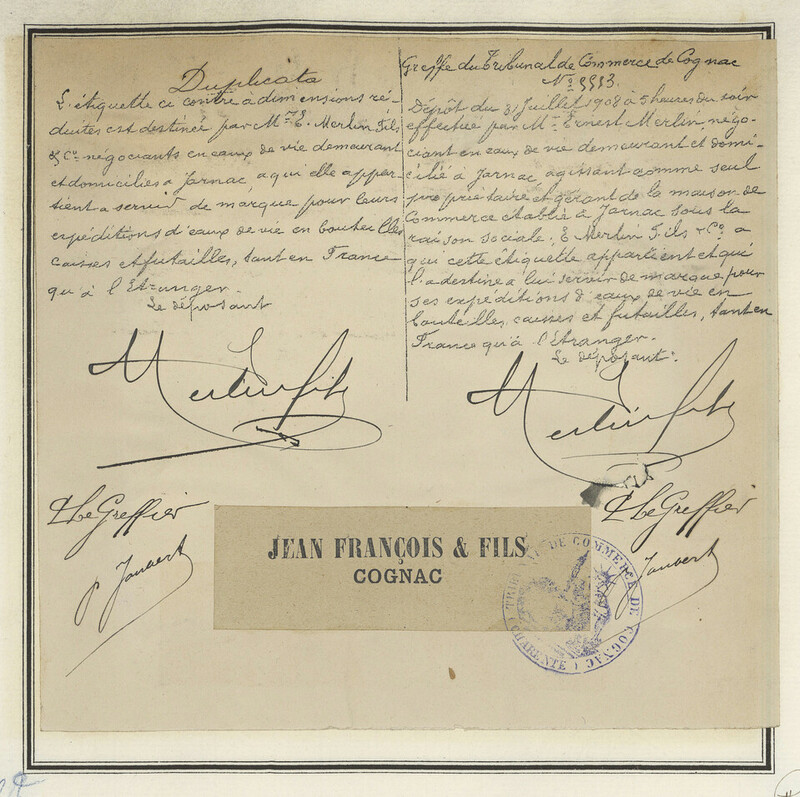 Duplicata
L'étiquette ci contre a dimensions ré-
duites est destinée par Mr E. Merlin Fils
& Co. négociants en eaux de vie demeurant
et domiciliés à Jarnac, a qui elle appar-
tient a servir de marque pour leurs
expéditions d'eaux de vie en bouteilles
caisses et futailles, tant en France
qu'à l'Etranger.
Le déposant
Merlin fils
P Le Greffier
p Jauvert
Greffe du Tribunal de Commerce de Cognac
No 5553.
Dépôt du 31 Juillet 1908 à 5 heures du soir
effectué par Mr Ernest Merlin, négo-
ciant en eaux de vie demeurant et domi-
cilié à Jarnac, agissant comme seul
propriétaire et gérant de la maison de
Commerce établie à Jarnac sous la
raison sociale: E Merlin Fils & Co. a
qui cette étiquette appartient et qui
l'a destinée a lui servir de marque pour
ses expéditions d'eaux de vie en
bouteilles, caisses et futailles, tant en
France qu'à l'Etranger.
Le déposant:
Merlin fils
P Le Greffier
p Jauvert
JEAN FRANÇOIS & FILS
COGNAC
TRIBUNAL DE COMMERCE DE COGNAC
(CHARENTE)